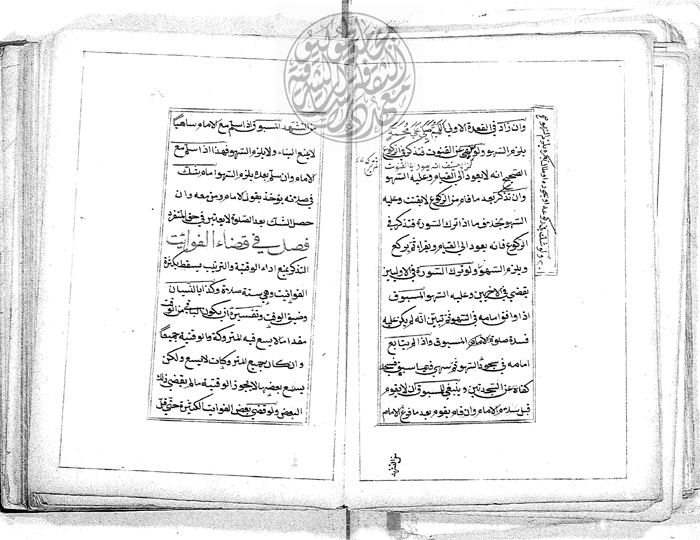 وان زاد في القعدة الاولى اللهم صل على محمد
يلزم السهو ولو سهى عن القنوت فتذكر في الركوع
الصحيح انه لا يعود الى القيام وعليه السهو
وان تذكر بعد ما قام من الركوع لا يقنت وعليه
السهو بخلاف ما اذا ترك السورة فتذكر في
الركوع فانه يعود الى القيام ويقراء ثم يركع
ويلزم السهو ولو ترك السورة في الاوليين
يقضي في الاخريين وعليه السهو المسبوق
اذا وافق امامه في السهو ثم تبين انه لم يكن عليه
فسدة صلوة المسبوق واذا لم يتابع
امامه في سجود السهو ثم سهى فيما سبق فسجد
كفاه عن السجدتين وينبغي للمسبوق ان لا يقوم
قبل سلام الامام وان قام يقوم بعد ما فرغ الامام
من التشهد
من التشهد المسبوق اذا سلم مع الامام ساهيا
لا يمنع البناء ولا يلزم السهو فهذا اذا سلم مع
الامام وان سلم بعده يلزم السهو امام شك
في صلاته يؤخذ بقول الامام ومن معه وان
حصل الشك بعد الصلوة لا يعتبر في حق المنفرد
فصل في قضاء الفوائت
التذكر يمنع اداء الوقتية والترتيب يسقط بكثرة
الفوائيت وهي ستة صلاة وكذا بالنسيان
وضيق الوقت وتفسيره ان يكون الباقي من الوقت
مقدار ما لا يسع فيه المتروكة والوقتية جميعا
وان كان جميع المتروكات لا يسع ولكن
يسع بعضها لا يجوز الوقتية ما لم يقضي ذلك
البعض ولو قضي بعض الفوائت الكثيرة حتى قل